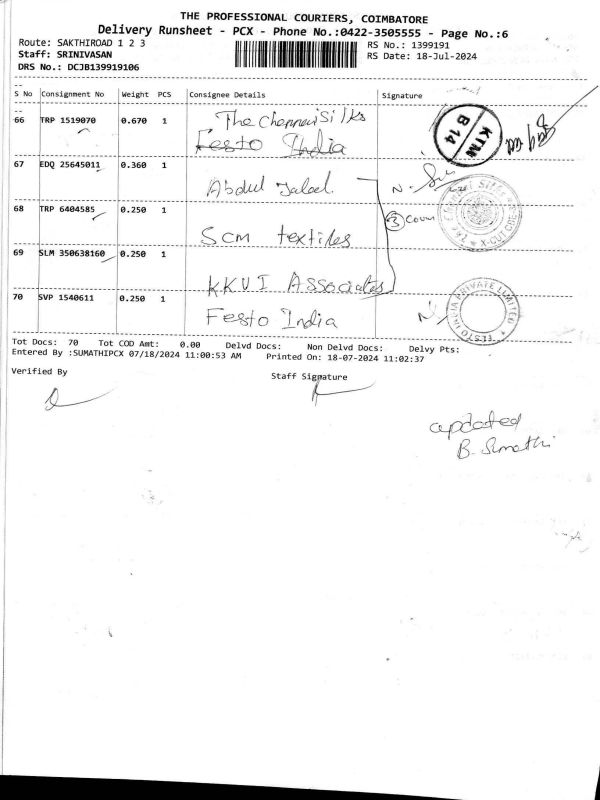 THE PROFESSIONAL COURIERS, COIMBATORE
Delivery Runsheet - PCX - Phone No.:0422-3505555 - Page No.:6
Route: SAKTHIROAD 1 2 3
RS No.: 1399191
Staff: SRINIVASAN
RS Date: 18-Jul-2024
DRS No.: DCJB139919106
S No Consignment No Weight PCS Consignee Details Signature
66 TRP 1519070 0.670 1 The Chennai Silks
Festo India
KTM
B 14
67 EDQ 25645011 0.360 1 Abdul Jaleel
68 TRP 6404585 0.250 1 Scm textiles
3
69 SLM 350638160 0.250 1 KKVI Associates
70 SVP 1540611 0.250 1 Festo India
FESTO INDIA PRIVATE LIMITED
Tot Docs: 70 Tot COD Amt: 0.00 Delvd Docs: Non Delvd Docs: Delvy Pts:
Entered By :SUMATHIPCX 07/18/2024 11:00:53 AM Printed On: 18-07-2024 11:02:37
Verified By
Staff Signature
updated
B. Sumathi